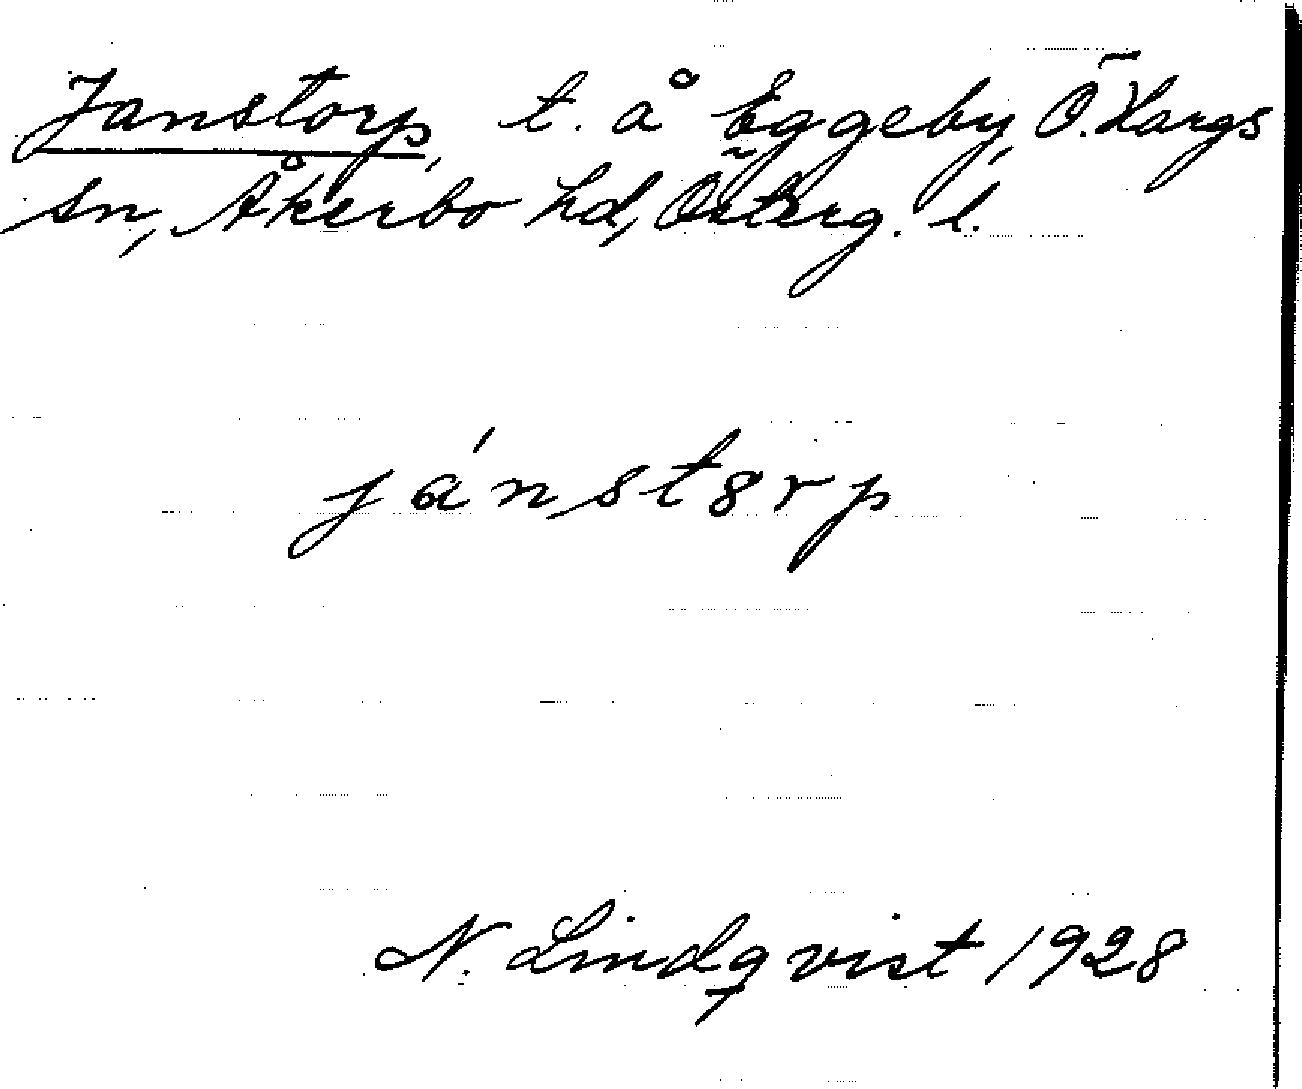 Janstorp, t. å Eggeby, Ö. Hargs
sn, Åkerbo hd, Österg. l.
jánstorp
N. Lindqvist 1928